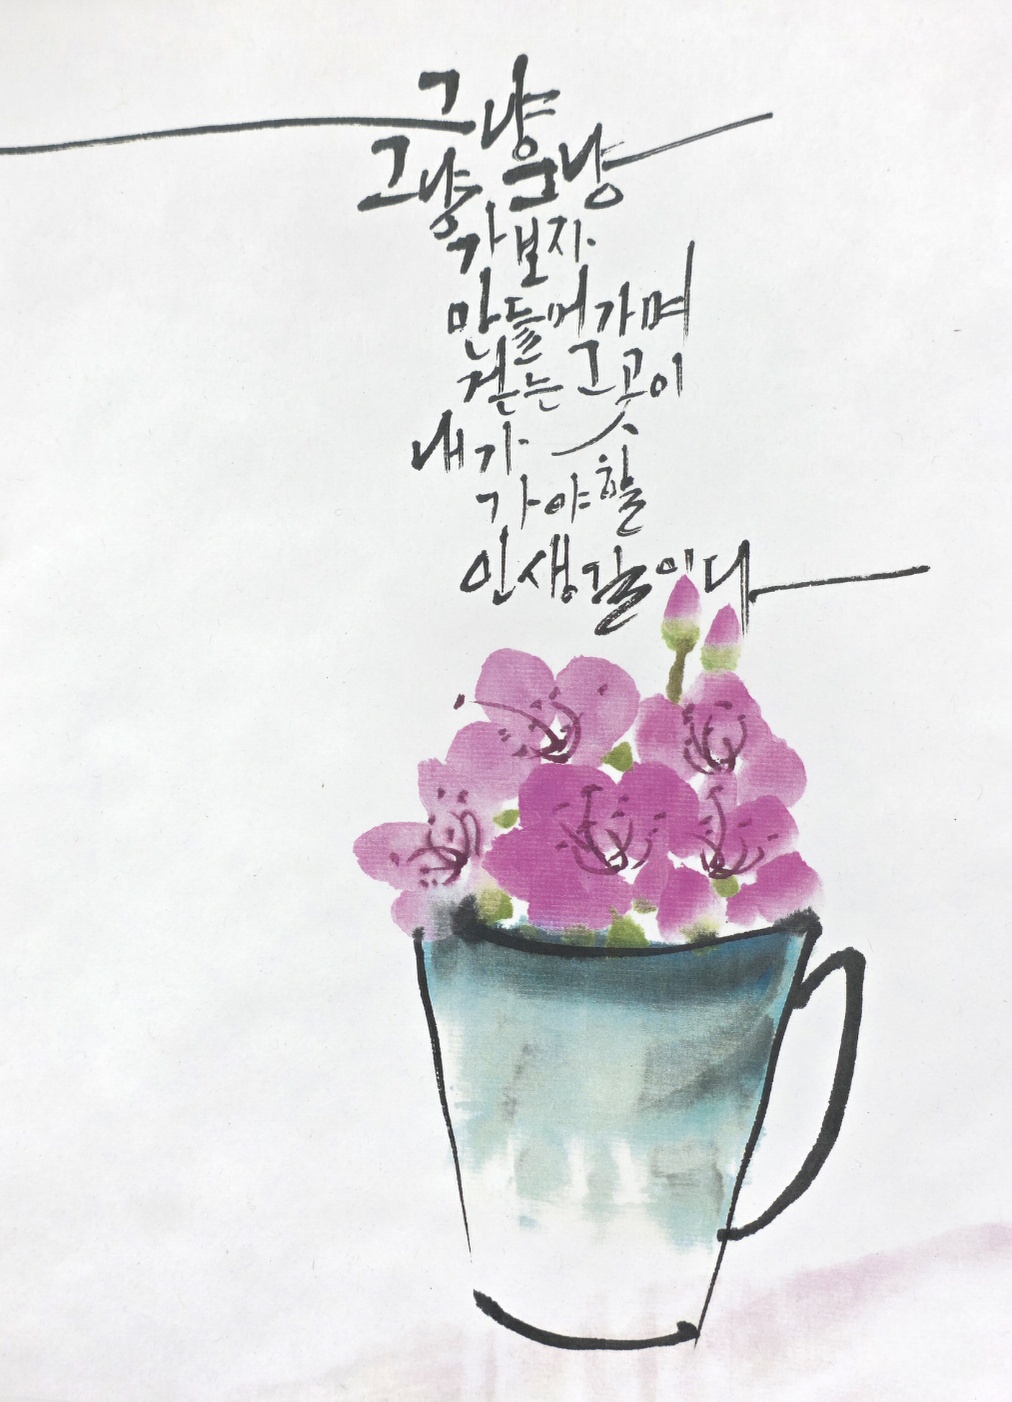 그냥
그냥 그냥
가보자
만들어가며
걷는 그곳이
내가
가야할
인생길이다